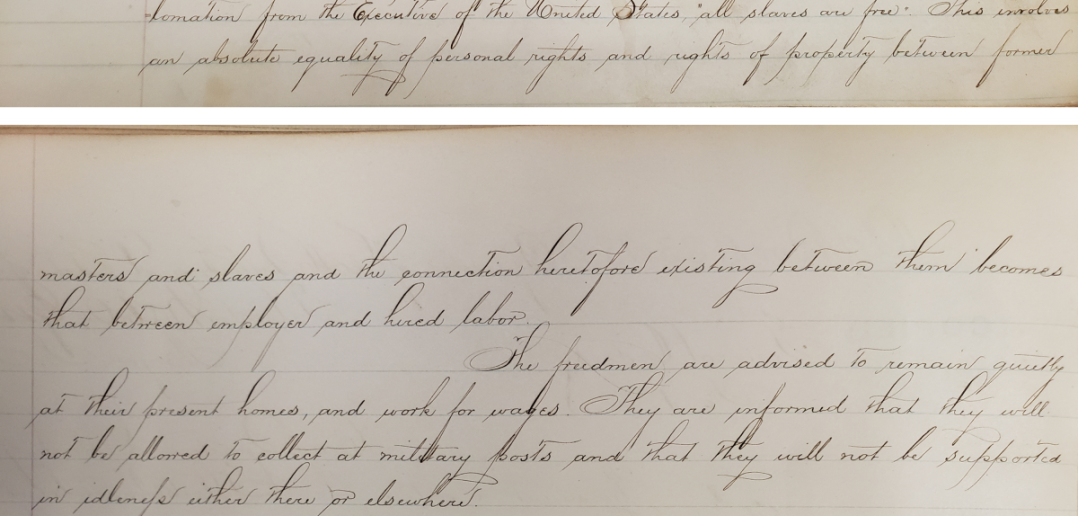 -lomation from the Executive of the United States, "all slaves are free". This involves
an absolute equality of personal rights and rights of property between former
masters and slaves and the connection heretofore existing between them becomes
that between employer and hired labor.
The freedmen are advised to remain quietly
at their present homes, and work for wages. They are informed that they will
not be allowed to collect at military posts and that they will not be supported
in idleness either there or elsewhere.